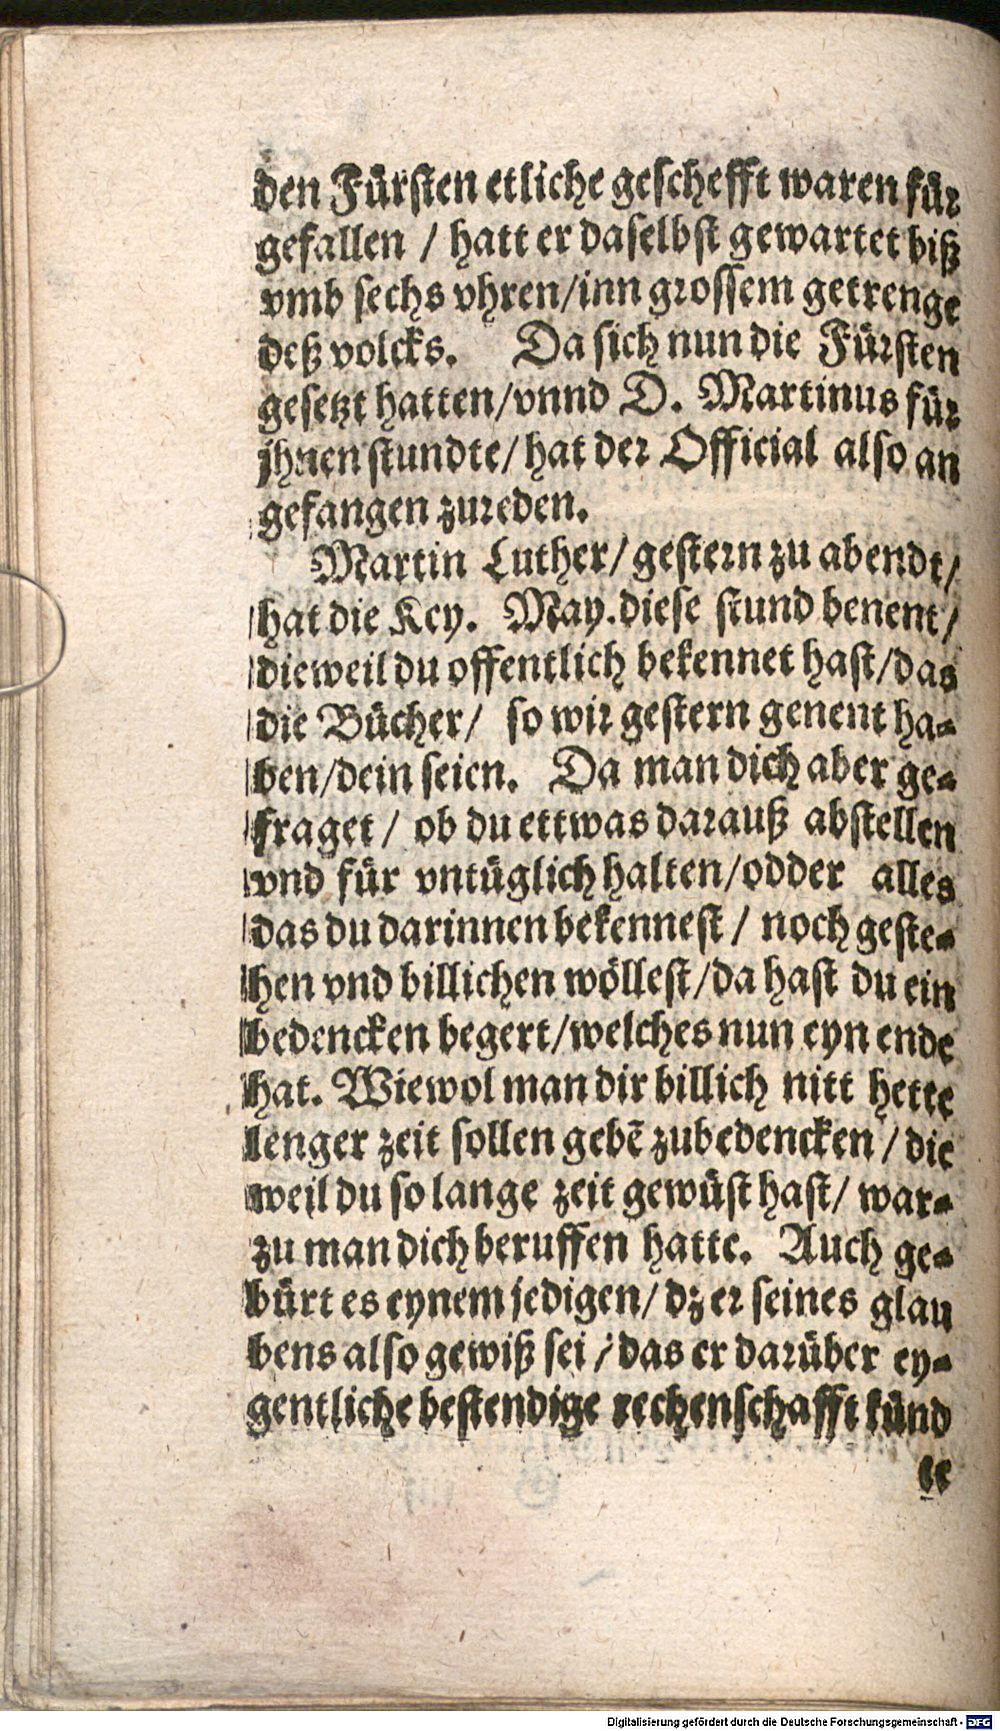 den Fürsten etliche geschefft waren für
gefallen / hatt er daselbst gewartet biß
vmb sechs vhren/inn grossem getrenge
deß volcks. Da sich nun die Fürsten
gesetzt hatten/vnnd D. Martinus für
jhnen stundte/hat der Official also an
gefangen zureden.
Martin Luther/gestern zu abendt/
hat die Key. May.diese stund benent/
dieweil du offentlich bekennet hast/das
die Bücher/ so wir gestern genent ha-
ben/dein seien. Da man dich aber ge-
fraget/ ob du ettwas darauß abstellen
vnd für vntüglich halten/odder alles
das du darinnen bekennest / noch geste-
hen vnd billichen wöllest/da hast du ein
bedencken begert/welches nun eyn ende
hat. Wiewol man dir billich nitt hette
lenger zeit sollen gebẽ zubedencken / die
weil du so lange zeit gewüst hast/ war-
zu man dich beruffen hatte. Auch ge-
bürt es eynem jedigen/ dz er seines glau
bens also gewiß sei / das er darüber ey-
gentliche bestendige rechenschafft künd
te
Digitalisierung gefördert durch die Deutsche Forschungsgemeinschaft - DFG